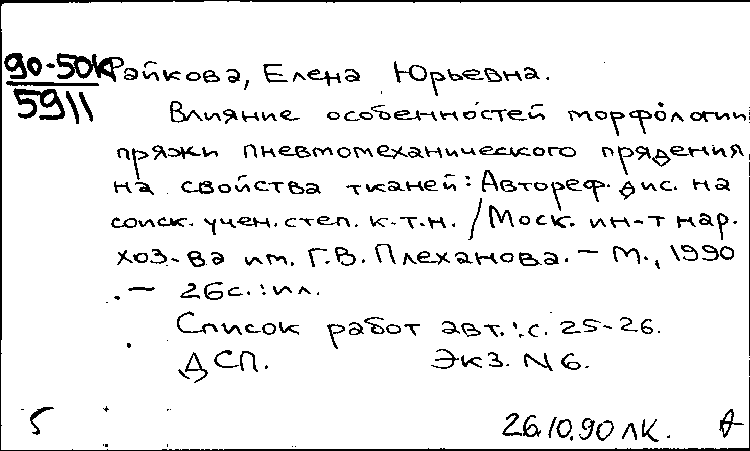 90-50К
5911
Райкова, Елена Юрьевна.
Влияние особенностей морфологии
пряжи пневмомеханического прядения
на свойства тканей: Автореф. дис. на
соиск. учен. степ. к.т.н. / Моск. ин-т нар.
хоз-ва им. Г.В. Плеханова. - М., 1990
. - 26с.: ил.
Список работ авт.: с. 25-26.
ДСП. Экз. N 6.
5 26.10.90 ЛК.